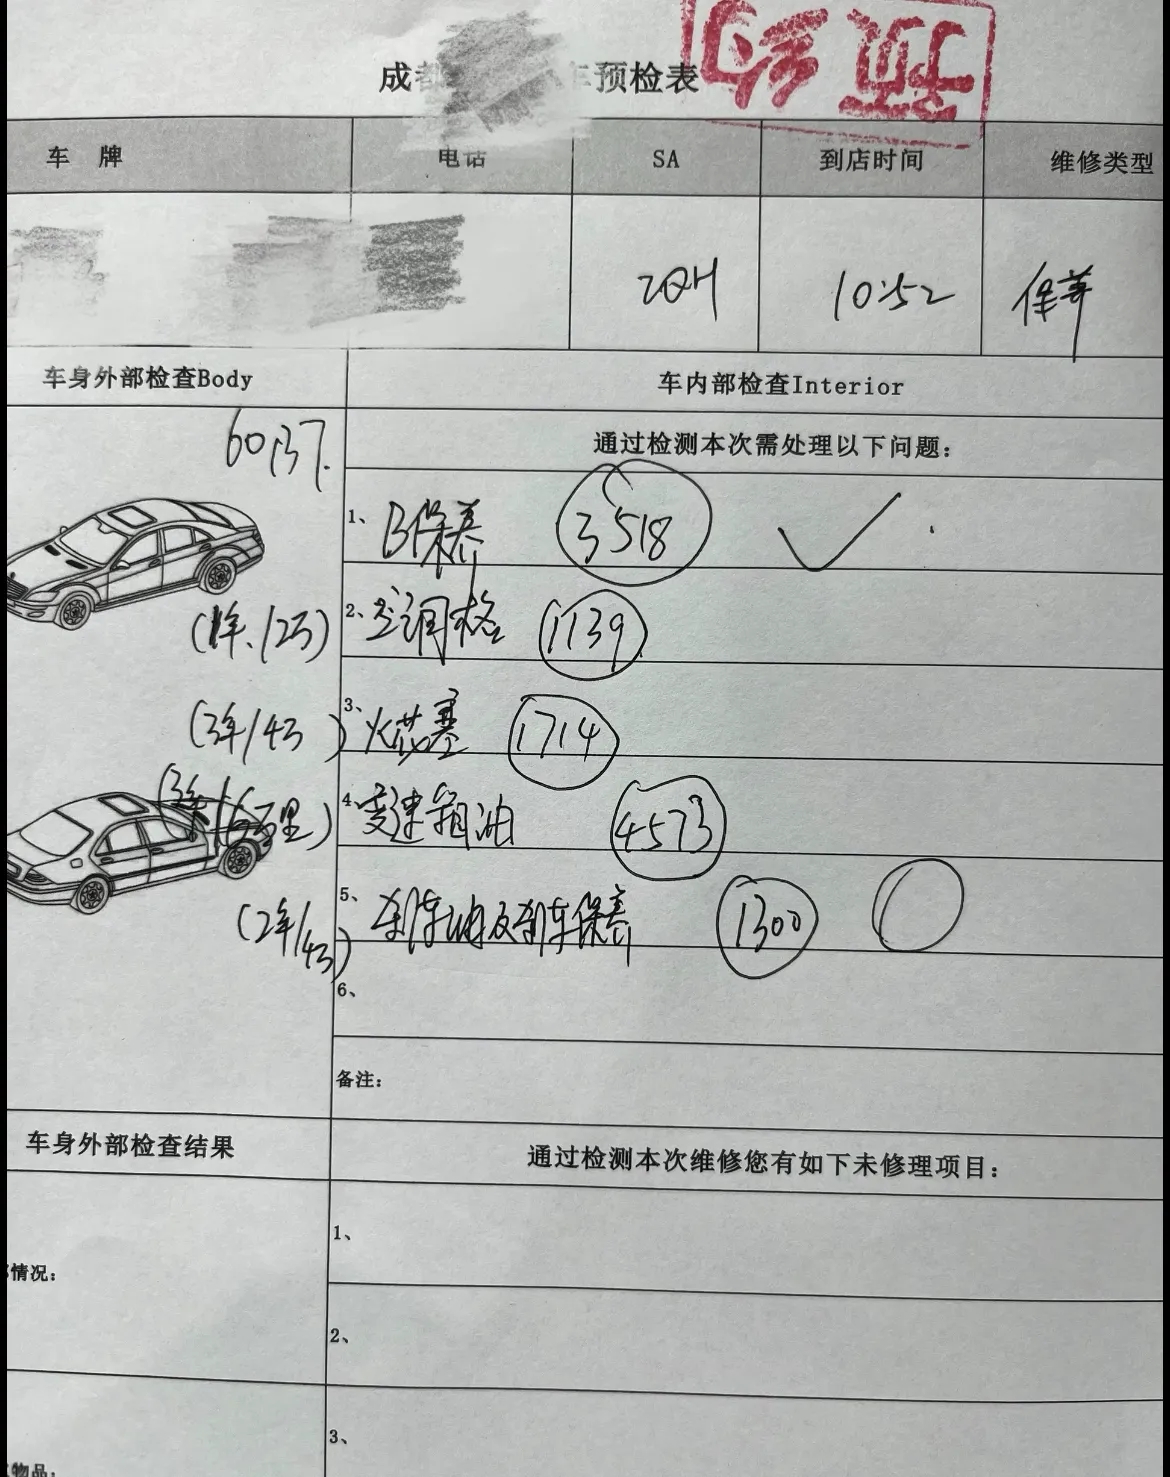 成都 车预检表
车 牌 电话 SA 到店时间 维修类型
ZQH 10:52 保养
车身外部检查Body 车内部检查Interior
60137.
通过检测本次需处理以下问题：
1、B保养 3518
(1年/2万) 2、空调格 1139
(3年/4万) 3、火花塞 1714
(3年/6万里) 4、变速箱油 4573
(2年/4万) 5、刹车油及刹车保养 1300
6、
备注：
车身外部检查结果 通过检测本次维修您有如下未修理项目：
1、
情况：
2、
3、
物品：